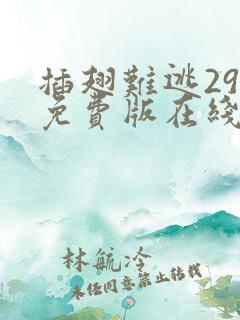 插翅難逃29
免費版在綫
林航冷
未經同意禁止轉載